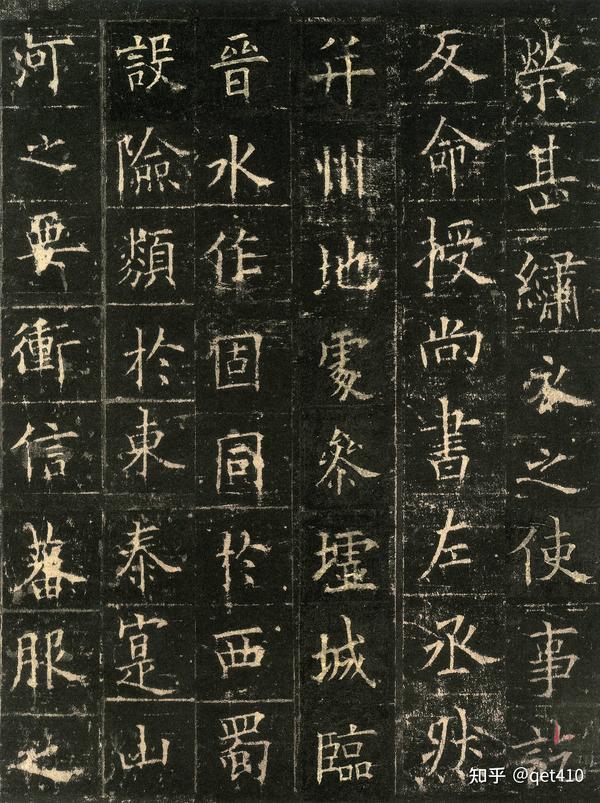 榮甚繡衣之使事訖
反命授尚書左丞然
并州地處參墟城臨
晉水作固同於西蜀
設險類於東泰寔山
河之要衝信蕃服之
知乎 @qet410